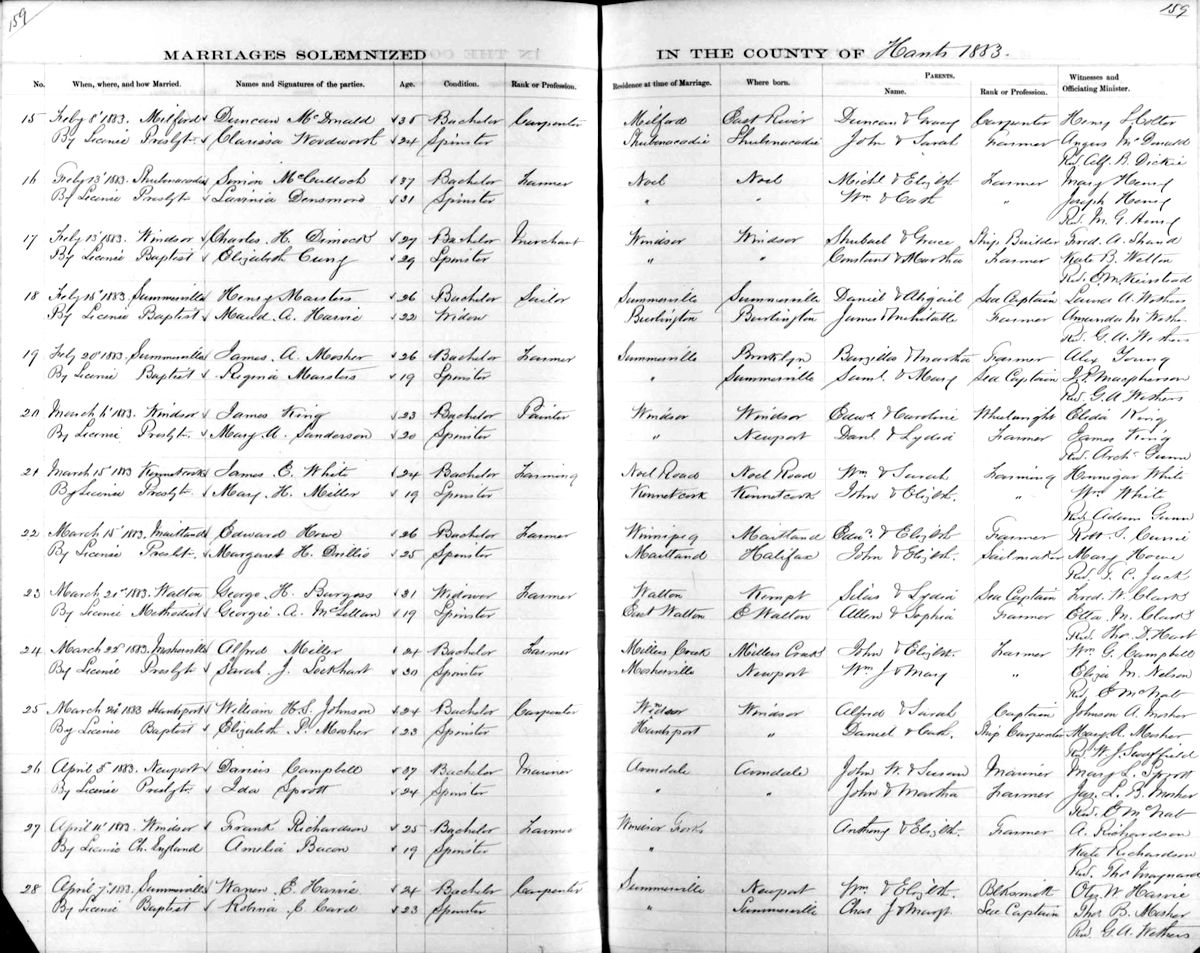 159
159
MARRIAGES SOLEMNIZED IN THE COUNTY OF Hants 1883.
No. When, where, and how Married. Names and Signatures of the parties. Age. Condition. Rank or Profession. Residence at time of Marriage. Where born. PARENTS. Name. Rank or Profession. Witnesses and Officiating Minister.
15 Feby 8" 1883. Milford Duncan McDonald Bachelor Carpenter Milford East River Duncan & Gracy Carpenter Henry
By Licence Presbyt. Clarissa Wordworth 24 Spinster Shubenacadie Shubenacadie John & Sarah Farmer Angus McDonald
Rev. Alf. B. Dickie
16 Feby 13" 1883. Shubenacadie Simon McCulloch 37 Bachelor Farmer Noel Noel Michl & Elizbth. Farmer Mary Henry
By Licence Presbyt Lavinia Densmord 21 Spinster " " Wm & Cath " Joseph Henry
Rev. M. G. Henry
17 Feby 13" 1883. Windsor Charles H. Dimock 27 Bachelor Merchant Windsor Windsor Shubael & Grace Ship Builder Fred. A. Shand
By Licence Baptist Elizabeth Cung 29 Spinster " " Constant & Martha Farmer Kate B. Welton
Rev. E. M. Keirstead
18 Feby 15" 1883 Summerville Henry Marsters 26 Bachelor Sailor Summerville Summerville Daniel & Abigail Sea Captain A. Withers
By Licence Baptist Maud A. Harvie 22 Widow Burlington Burlington James & Mehitable Farmer Amanda M.
Rev. G. A. Withers
19 Feby 20" 1883 Summerville James A. Mosher 26 Bachelor Farmer Summerville Brooklyn & Martha Farmer Alex Young
By Licence Baptist Regina Marsters 19 Spinster " Summerville Saml. & Mary Sea Captain J. P. Macpherson
Rev. G. A. Withers
20 March 6" 1883. Windsor James King 23 Bachelor Painter Windsor Windsor Edwd & Caroline Wheelwright Elida King
By Licence Presbyt. Mary A. Sanderson 20 Spinster " Newport Danl & Lydia Farmer James King
Rev. Archd Gunn
21 March 15" 1883 Kennetcook James E. White 24 Bachelor Farming Noel Road Noel Road Wm & Sarah Farming Hennigar White
By Licence Presbyt. Mary H. Miller 19 Spinster Kennetcook Kennetcook John & Elizbth. " Wm White
Rev. Adam Gunn
22 March 15" 1883. Maitland Edward Howe 26 Bachelor Farmer Winnipeg Maitland Edwd. & Elizbth Farmer Robt S. Currie
By Licence Presbt. Margaret H. Drillio 25 Spinster Maitland Halifax John & Elizbth. Sailmaker Mary Howe
Rev. T. C. Jack
23 March 21st 1883. Walton George H. Burgess 21 Widower Farmer Walton Kempt Silas & Lydia Sea Captain Fred. W. Clark
By Licence Methodist Georgie A. McLellan 19 Spinster East Walton E Walton Allen & Sophia Farmer Etta M. Clark
Rev. Tho. D. Hart
24 March 22" 1883. Mosherville Alfred Miller 24 Bachelor Farmer Millers Creek Millers Creek John & Elizbth. Farmer Wm G. Campbell
By Licence Presbyt Sarah J. Lockhart 30 Spinster Mosherville Newport Wm J & Mary " Eliza M. Nelson
Rev. E McNab
25 March 24" 1883 Hantsport William H. S. Johnson 24 Bachelor Carpenter Windsor Windsor Alfred & Sarah Captain Johnson A. Mosher
By Licence Baptist Elizabeth P. Mosher 23 Spinster Hantsport " Daniel & Cath. Ship Carpenter Mary A. Mosher
Rev. W. J.
26 April 5" 1883. Newport Darius Campbell 37 Bachelor Mariner Avondale Avondale John W. & Susan Mariner Mary L. Sprott
By Licence Presbyt. Ida Sprott 24 Spinster " " John & Martha Farmer Jas. L. B. Mosher
Rev. E McNab
27 April 11" 1883. Windsor Frank Richardson 25 Bachelor Farmer Windsor Forks Anthony & Elizbth. Farmer A. Richardson
By Licence Ch. England Amelia Bacon 19 Spinster " Kate Richardson
Rev. Thos Maynard
28 April 7" 1883. Summerville Warren E. Harvie 24 Bachelor Carpenter Summerville Newport Wm. & Elizbth. Blksmith W. Harvie
By Licence Baptist Robina C. Card 23 Spinster " Summerville Chas J & Margt. Sea Captain Thos B. Mosher
Rev. G. A. Withers